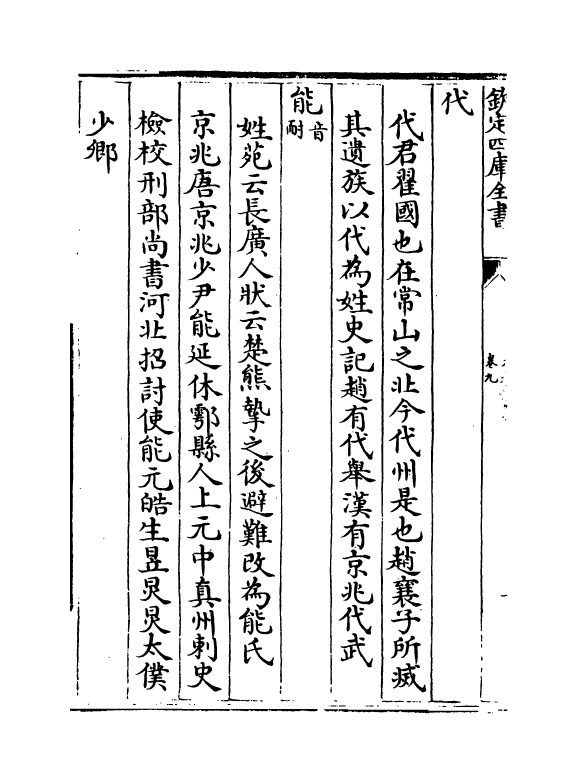 欽定四庫全書
卷九
代
代君翟國也在常山之北今代州是也趙襄子所滅
其遺族以代為姓史記趙有代舉漢有京兆代武
能音耐
姓苑云長廣人狀云楚熊摯之後避難改為能氏
京兆唐京兆少尹能延休鄠縣人上元中真州刺史
檢校刑部尚書河北招討使能元皓生昱炅炅太僕
少卿